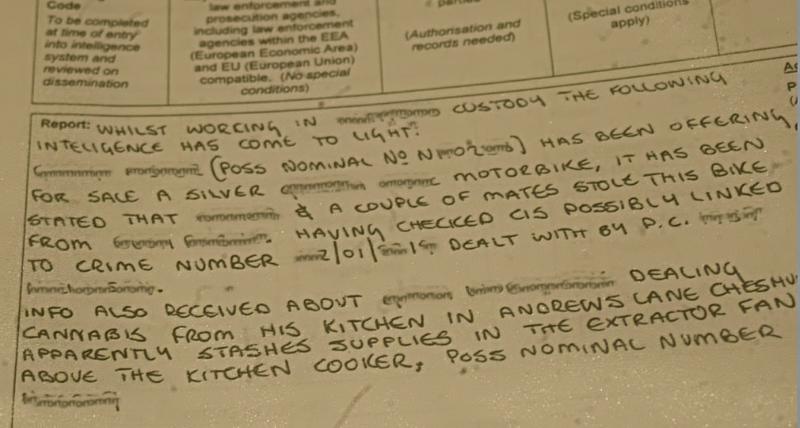 Code
To be completed
at time of entry
into intelligence
system and
reviewed on
dissemination
law enforcement and
prosecution agencies,
including law enforcement
agencies within the EEA
(European Economic Area)
and EU (European Union)
compatible. (No special
conditions)
(Authorisation and
records needed)
(Special conditions
apply)
Report: WHILST WORCING IN CUSTODY THE FOLLOWING
INTELIGENCE HAS COME TO LIGHT:
(POSS NOMINAL No N) HAS BEEN OFFERING
FOR SALE A SILVER MOTORBIKE, IT HAS BEEN
STATED THAT & A COUPLE OF MATES STOLE THIS BIKE
FROM . HAVING CHECKED CIS POSSIBLY LINKED
TO CRIME NUMBER /01/ DEALT WITH BY P.C.
INFO ALSO RECEIVED ABOUT DEALING
CANNABIS FROM HIS KITCHEN IN ANDREWS LANE CHESHU
APPARENTLY STASHES SUPPLIES IN THE EXTRACTOR FAN
ABOVE THE KITCHEN COOKER, POSS NOMINAL NUMBER